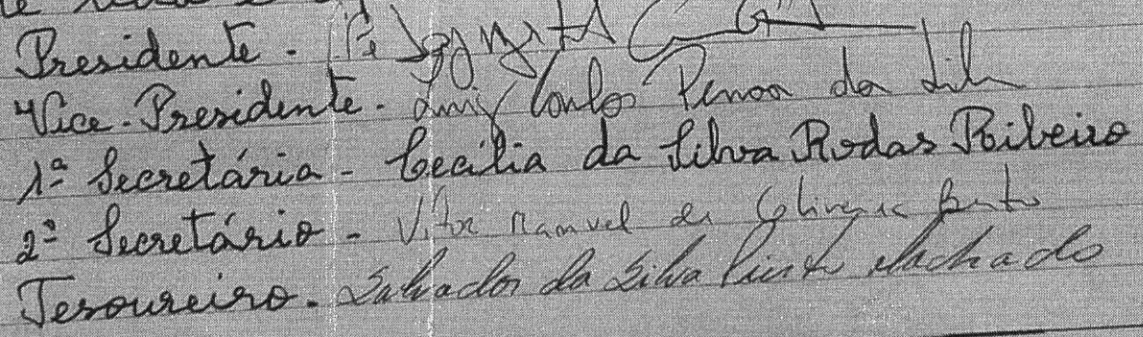 Presidente. Pe
Vice-Presidente. Luiz Carlos da Silva
1ª Secretária - Cecilia da Silva Rodas Ribeiro
2º Secretário - Vitor Manuel de Pinto
Tesoureiro. Salvador da Silva Pinto Machado